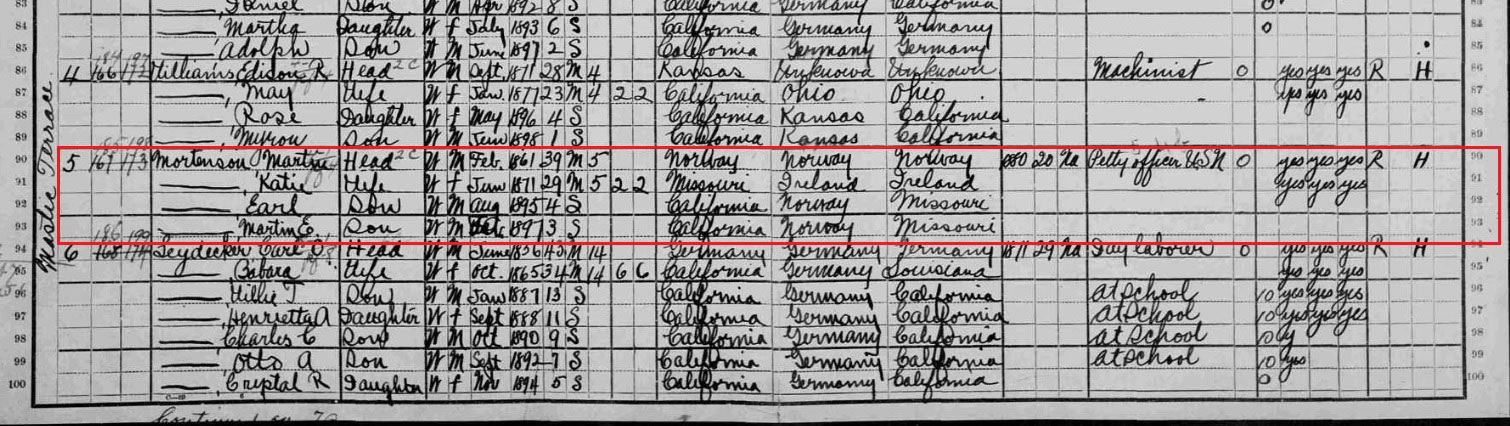 83 Daniel Son W M Apr 1892 8 S California Germany California
84 Martha Daughter W f July 1893 6 S California Germany Germany 84
85 Adolph Son W M June 1897 2 S California Germany Germany 85
4 166 Williams, Edison R Head W M Sept 1871 28 M 4 Kansas Unknown Unknown Machinist 0 yes yes yes R H 86
87 May Wife W f Jan. 1877 23 M 4 2 2 California Ohio Ohio yes yes yes 87
88 Rose Daughter W f May 1896 4 S California Kansas California 88
89 Myron Son W M Jun 1898 1 S California Kansas California 89
Terrace
90 5 167 173 Mortenson Martin Head W M Feb. 1861 39 M 5 Norway Norway Norway 1880 20 Na Petty officer USN 0 yes yes yes R H 90
91 Katie Wife W f Jun 1871 29 M 5 2 2 Missouri Ireland Ireland yes yes yes 91
92 Earl Son W M Aug 1895 4 S California Norway Missouri 92
93 Martin E Son W M 1897 3 S California Norway Missouri 93
94 6 Leydecker, Carl Head W M June 1856 43 M 14 Germany Germany Germany 29 Na Day laborer 0 yes yes yes R H 94
95 Babara Wife W f Oct. 1865 34 M 14 6 6 California Germany Louisiana yes yes yes 95
96 Willie T Son W M Jan 1887 13 S California Germany California At School 10 yes yes yes 96
97 Henrietta A Daughter W f Sept 1888 11 S California Germany California At School 10 yes yes yes 97
98 Charles C Son W M Oct 1890 9 S California Germany California At School 10 y 98
99 Otto A Son W M Sept 1892 7 S California Germany California At School 10 yes 99
100 Crystal R Daughter W f Nov 1894 5 S California Germany California 0 100
Continued on